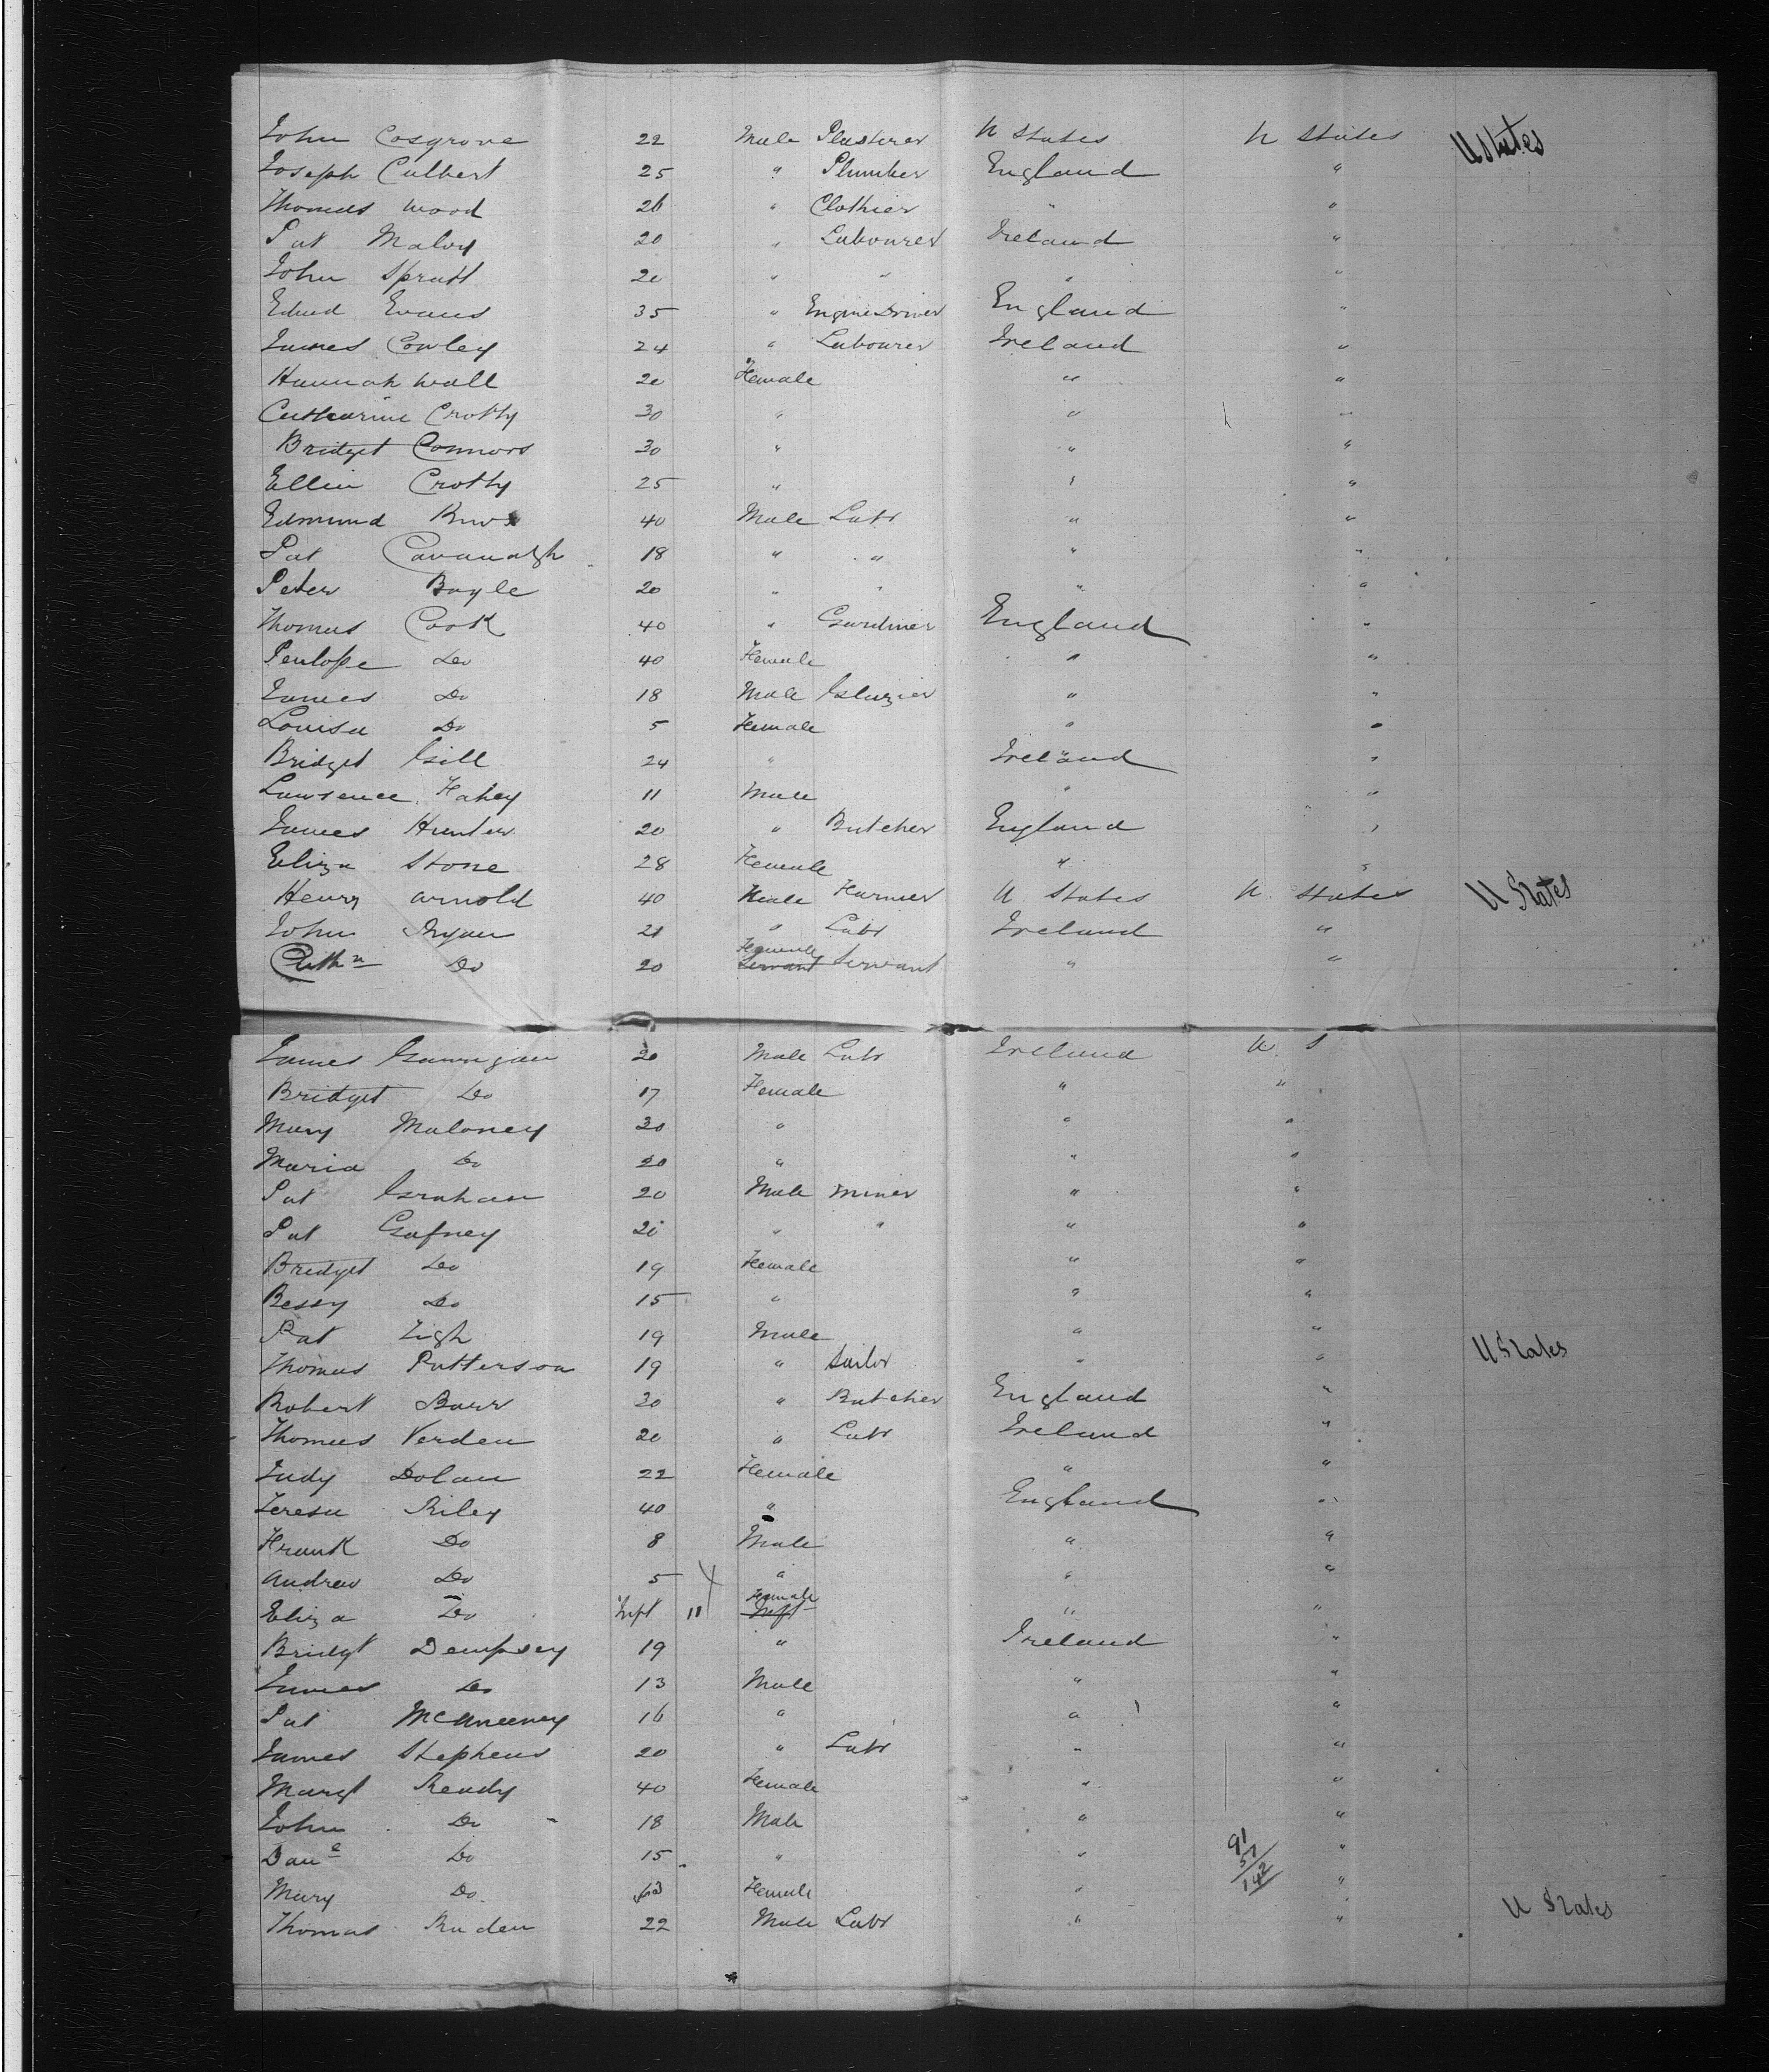 John Cosgrove 22 Male Plasterer U States U States U States
Joseph Culbert 25 " Plumber England "
Thomas Wood 26 " Clothier " "
Pat Maloy 20 " Labourer Ireland "
John Spratt 20 " " " "
Edwd Evans 35 " Engine Driver England "
James Cowley 24 " Labourer Ireland "
Hannah Wall 20 Female " "
Catharine Crotty 30 " " "
Bridget Connors 30 " " "
Ellin Crotty 25 " " "
Edmund 40 Male Labr " "
Pat Cavanagh 18 " " " "
Peter Boyle 20 " " " "
Thomas Cook 40 " Gardiner England "
Penlope Do 40 Female " "
James Do 18 Male Glazier " "
Louisa Do 5 Female " "
Bridget Gill 24 " Ireland "
Lawrence Fahey 11 Male " "
James Hunter 20 " Butcher England "
Eliza Stone 28 Female " "
Henry Arnold 40 Male Farmer U States U States U States
John Ryan 21 " Labr Ireland "
Cathn Do 20 Female Servant Servant " "
James Gannigan 20 Male Labr Ireland U S
Bridget Do 17 Female " "
Mary Maloney 30 " " "
Maria Do 20 " " "
Pat Graham 20 Male Miner " "
Pat Gafney 20 " " " "
Bridget Do 19 Female " "
Bessy Do 15 " " "
Pat Tigh 19 Male " " U States
Thomas Patterson 19 " Sailor " "
Robert Barr 30 " Butcher England "
Thomas Verden 20 " Labr Ireland "
Judy Dolan 22 Female " "
Teresa Riley 40 " England "
Frank Do 8 Male " "
Andrew Do 5 " " "
Eliza Do Inft 11 Female Inft " "
Bridgt Dempsey 19 " Ireland "
James Do 13 Male " "
Pat McAneeney 16 " " "
James Stephens 20 " Labr " "
Margt Ready 40 Female " "
John Do 18 Male " "
Danl Do 15 " " 91 "
51
142
Mary Do 13 Female " "
Thomas Ruden 22 Male Labr " " U States